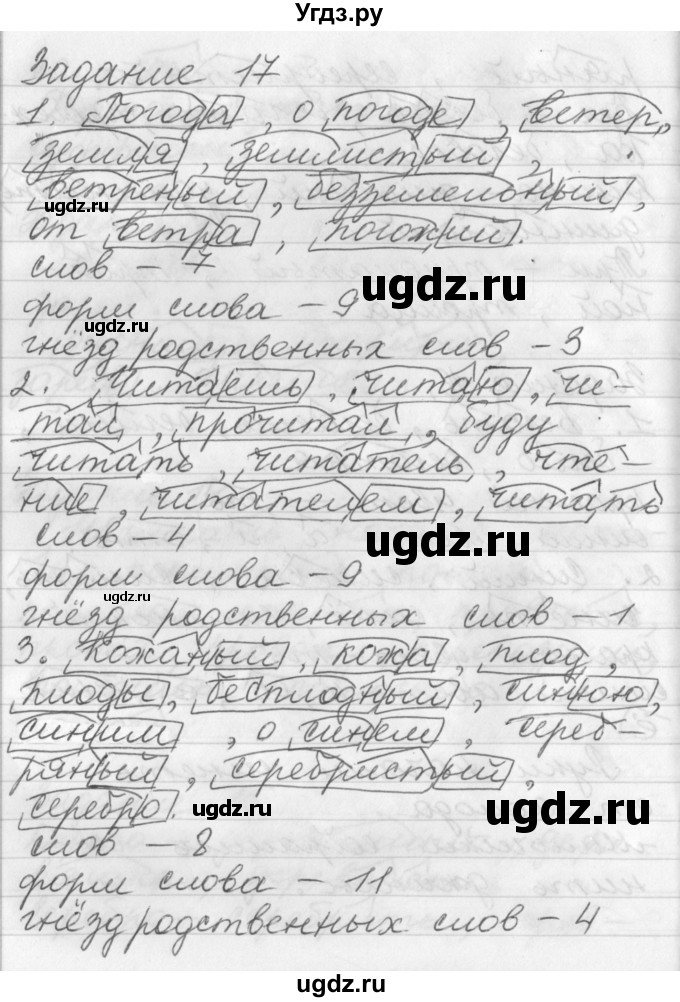 Угдз.ру
Задание 17
1. Погода, о погоде, ветер,
земля, землистый,
ветреный, безземельный,
ugdz.ru
от ветра, погожий.
слов - 7
ugdz.ru
форм слова - 9
ugdz.ru
гнёзд родственных слов - 3
2. Читаешь, читаю, чи-
тал, прочитал, буду
читать, читатель, чте-
ние, читателем, читать
слов - 4
ugdz.ru
форм слова - 9
ugdz.ru
гнёзд родственных слов - 1
3. Кожаный, кожа, плод,
плоды, бесплодный, синюю,
синим, о синем, сереб-
ряный, серебристый,
серебро.
ugdz.ru
ugdz.ru
слов - 8
форм слова - 11
гнёзд родственных слов - 4
ugdz.ru